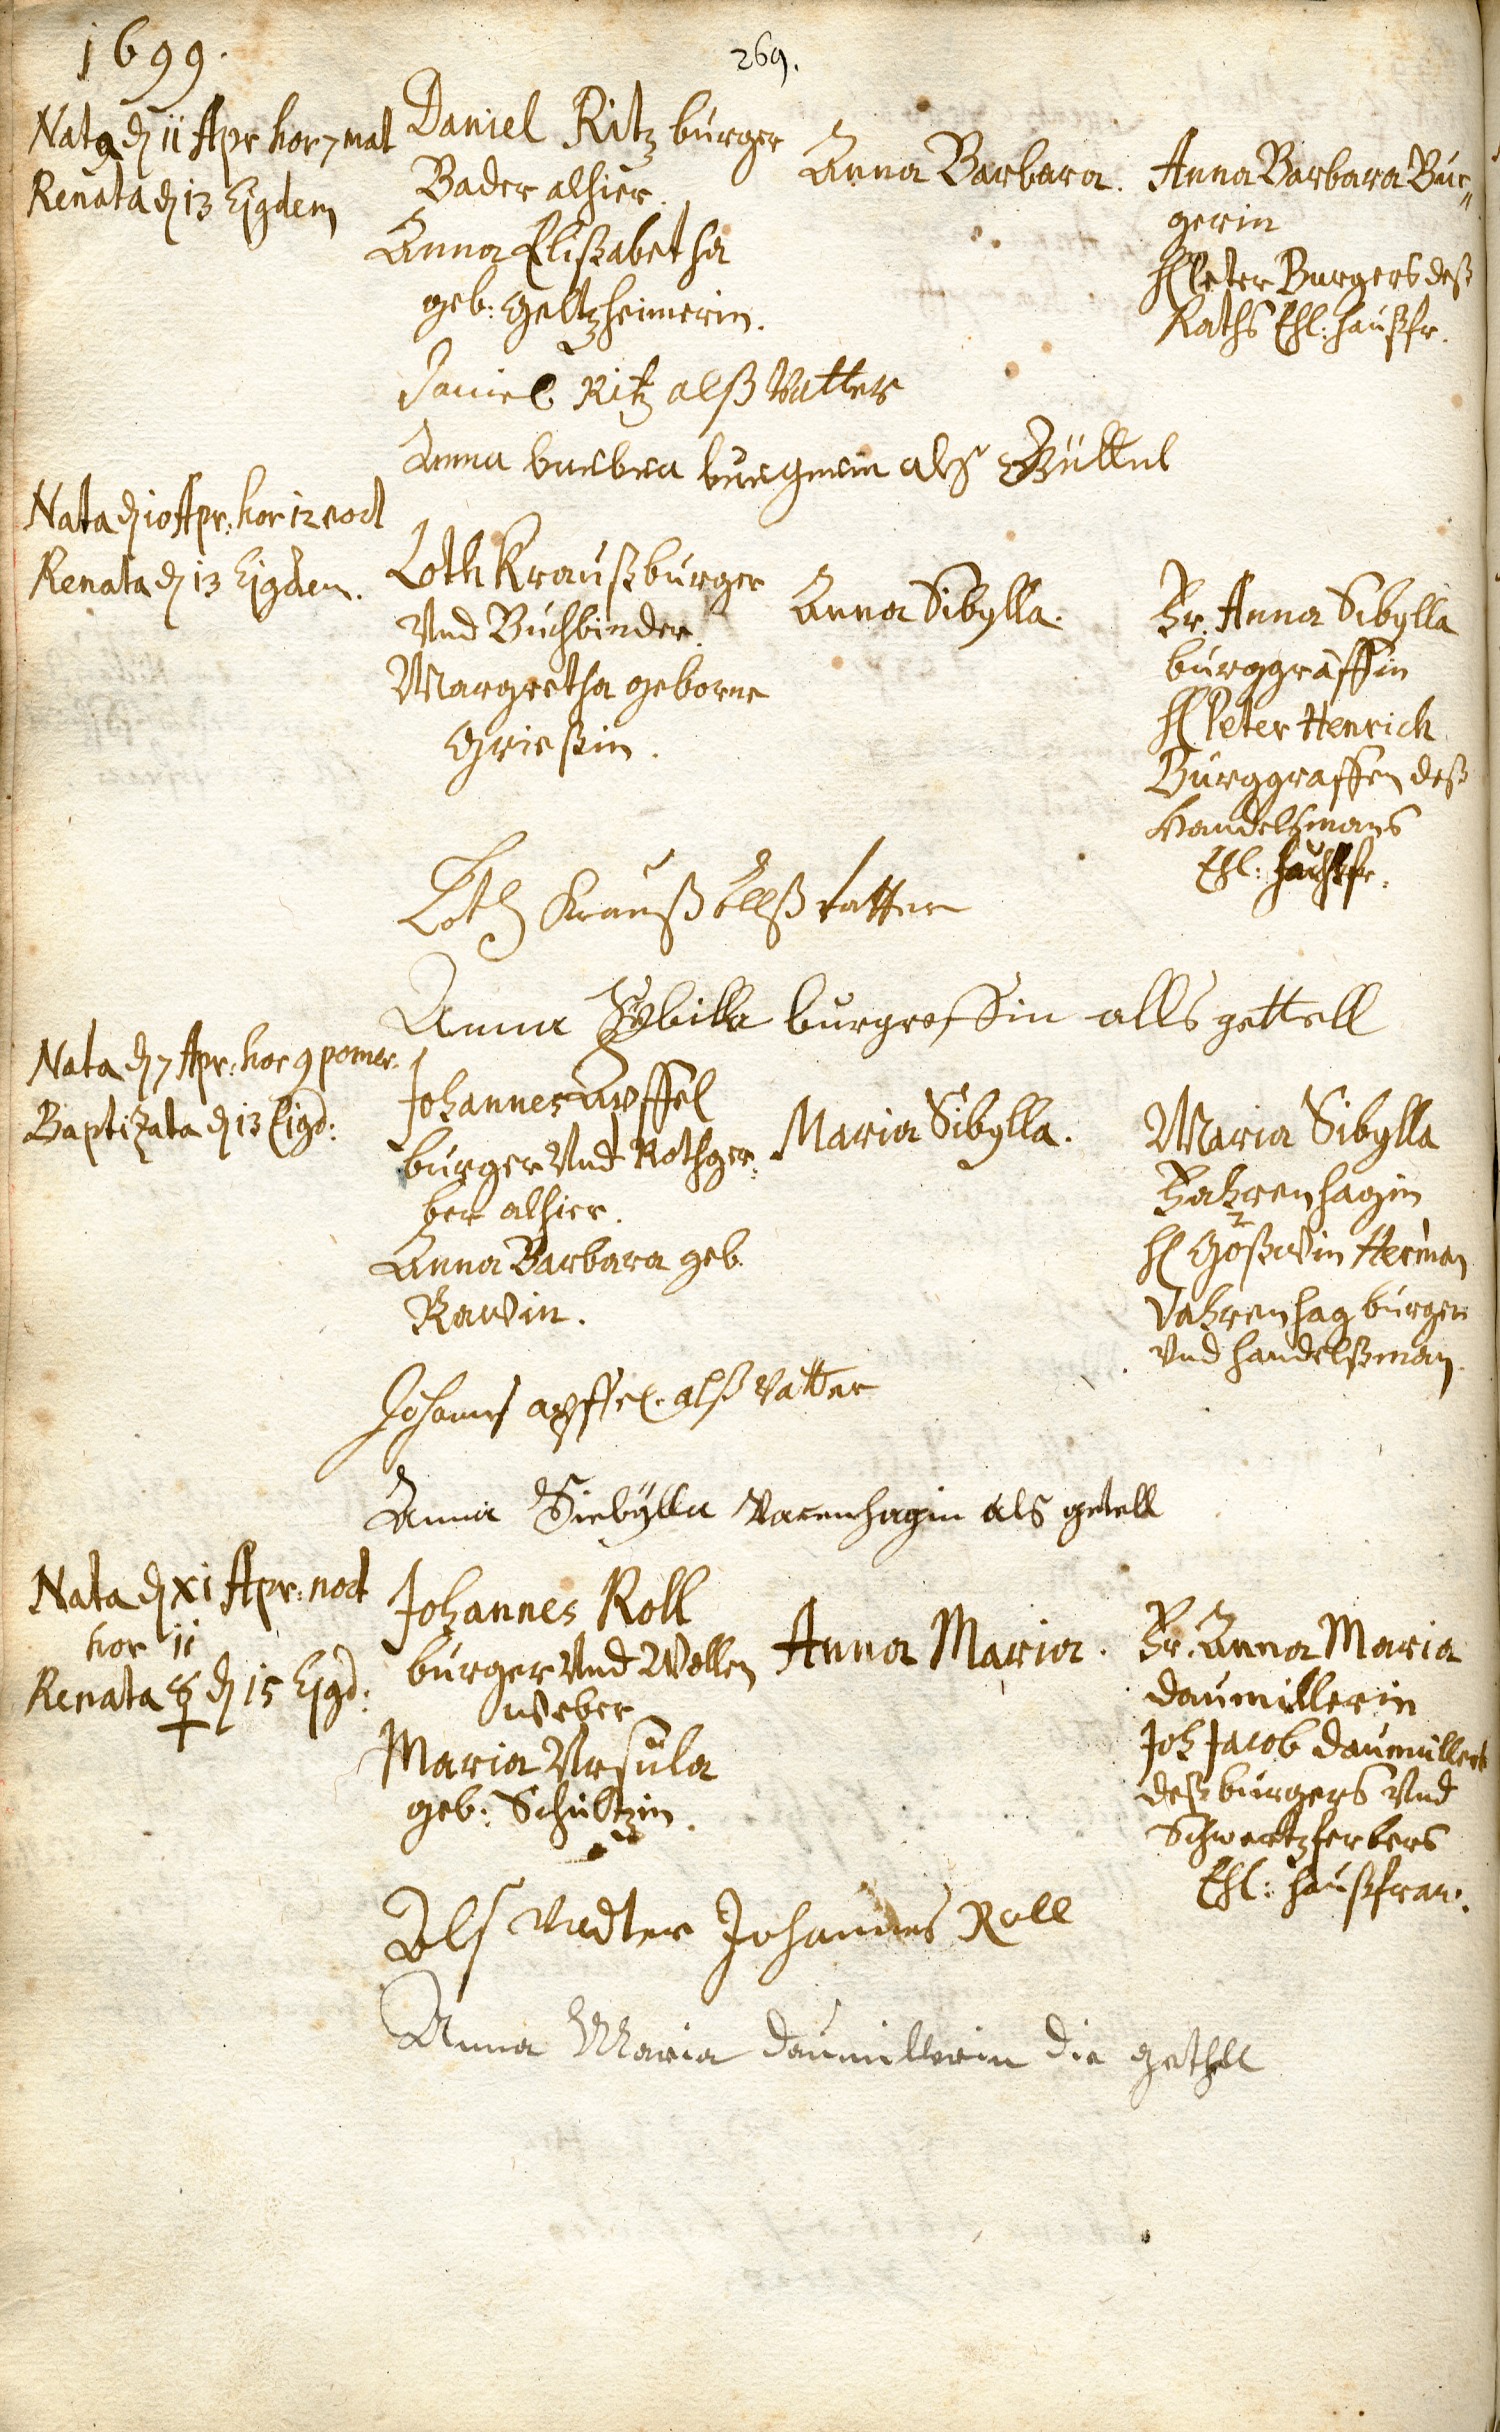 1699.
269.
Nata d 11 Apr hor 7 mat
Renata d 13 Ejgdem
Daniel Ritz burger
Bader alhier.
Anna Elisabetha
geb: Geltzheimerin.
Anna Barbara.
Anna Barbara Bur„
gerin
H Peter Burgers deß
Raths Ehl: haußfr.
Daniel Ritz alß Vatter
Anna barbra burgerin als Göttel
Nata d 10 Apr: hor 12 noct
Renata d 13 Ejgdem.
Loth Krauß burger
Vnd Buchbinder.
Margretha geborne
Grießin.
Anna Sibylla.
Fr. Anna Sibylla
burggräffin
H Peter Henrich
Burggraffen deß
handelßmans
Ehl: haußfr.
Loth Krauß Alß vatter
Anna Sybilla burgreffin alls gettell
Nata d 7 Apr: hor 9 pomer.
Baptizata d 13 Ejgd:
Johannes Apffel
burger Vnd Rothger:
ber alhier.
Anna Barbara geb.
Rawin.
Maria Sibylla.
Maria Sibylla
Fahrenhagin
H Goßwin Herman
Vahrenhag burger
Vnd handelßman
Johanes apffel. alß Vatter
Anna Siebylla Varenhagin als getell
Nata d XI Apr: noct
hor 11
Renata ☿ d 15 Ejgd:
Johannes Roll
burger Vnd Wollen
weber
Maria Vrsula
geb: Schultzin.
Anna Maria.
Fr. Anna Maria
daumillerin
Joh Jacob daumüllers
deß burgers Vnd
Schwartzferbers
Ehl: haußfraw.
Als Vadter Johannes Roll
Anna Maria daumillerin die gethell